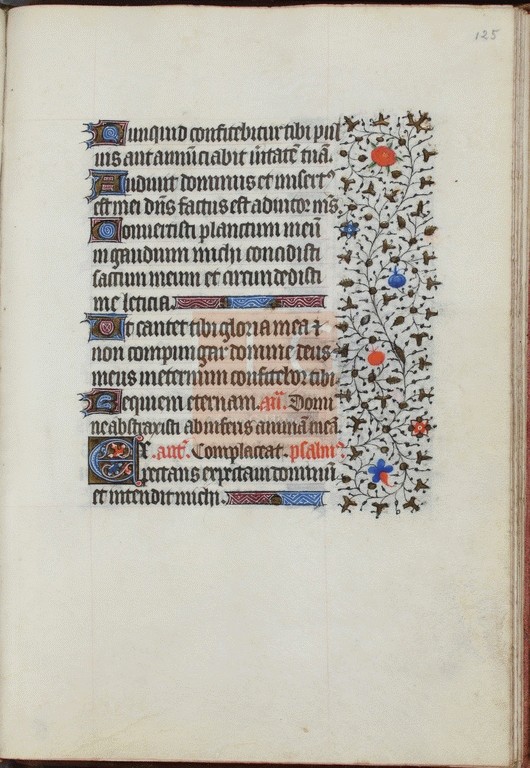 125
Nunquid confitebitur tibi pul
uis aut annũciabit ṽitatẽ tuã.
Audiuit dominus et misert9
est mei dñs factus est adiutor m9.
Conuertisti planctum meũ
in gaudium michi concidisti
saccum meum et circundedisti
me leticia.
Ut cantet tibi gloria mea ⁊
non compungar domine deus
meus in eternum confitebor tibi.
Requiem eternam. Añ. Domi
ne abstraxisti ab inferis animã meã.
añt. Complaceat. psalm9.
Expectans expectaui dominũ
et intendit michi.